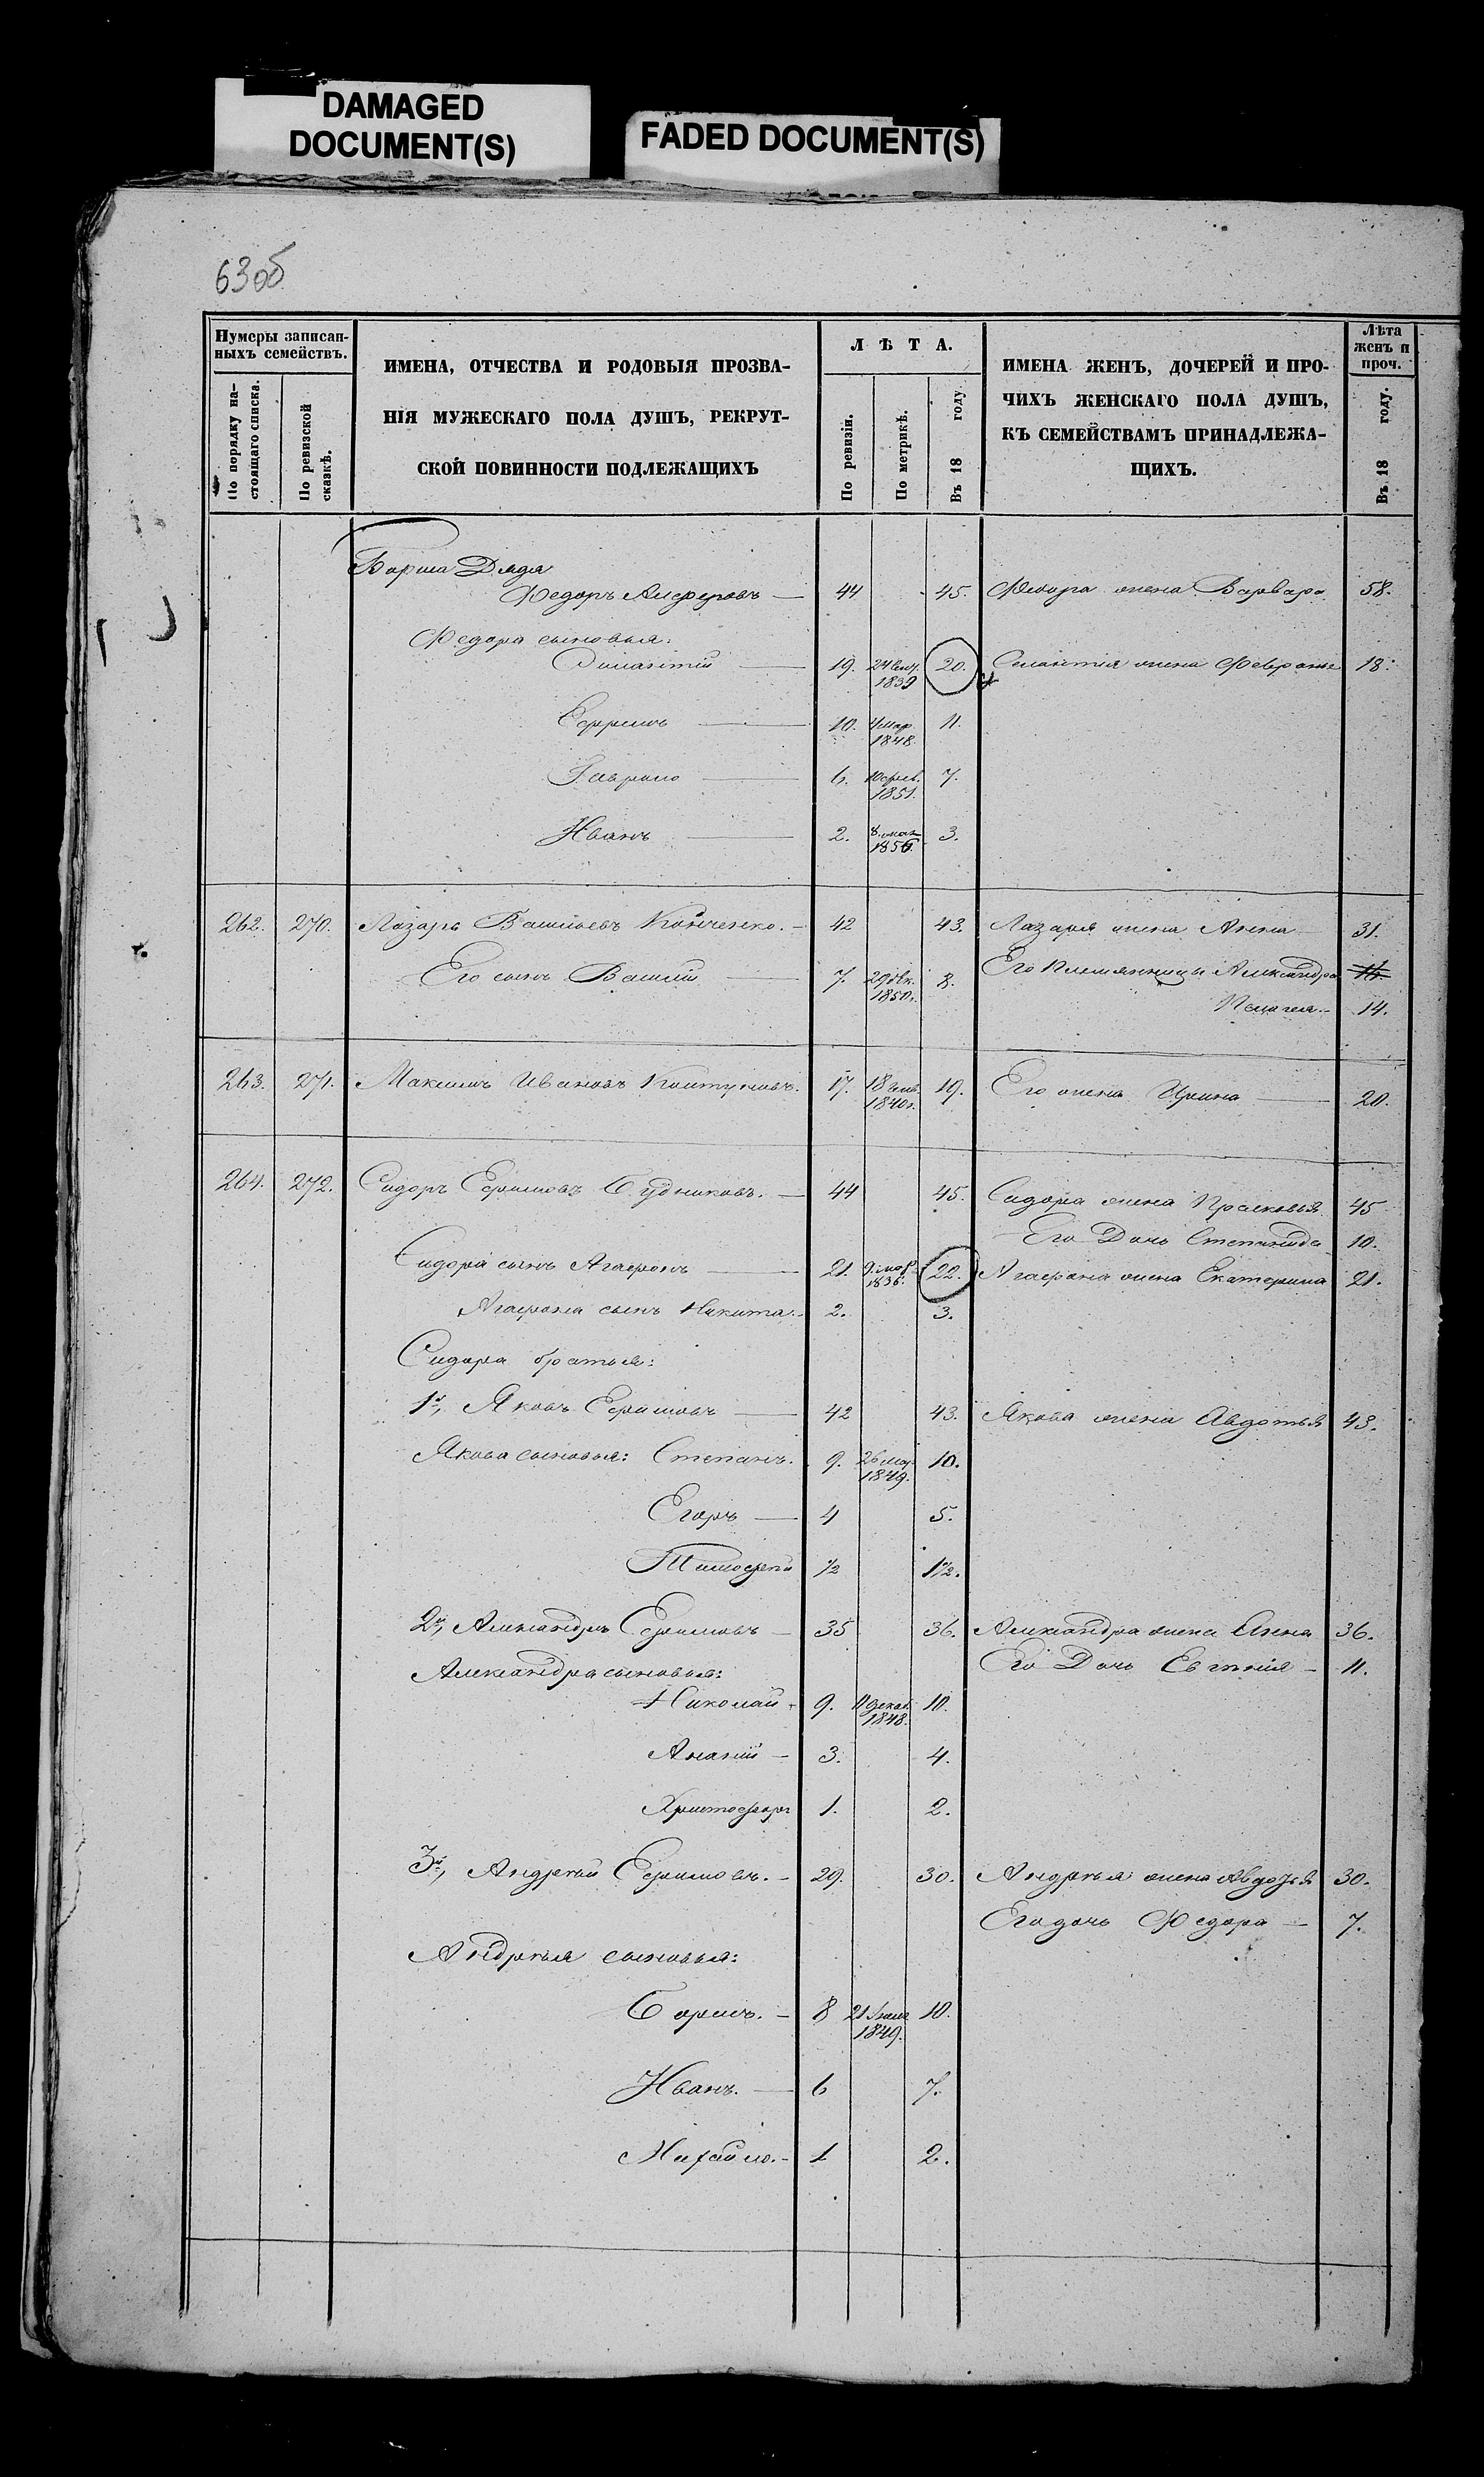 DAMAGED
DOCUMENT(S)
FADED DOCUMENT(S)
63об
Нумеры записан-
ныхъ семействъ.
По порядку на-
стоящаго списка.
По ревизской
сказкѣ.
ИМЕНА, ОТЧЕСТВА И РОДОВЫЯ ПРОЗВА-
НІЯ МУЖЕСКАГО ПОЛА ДУШЪ, РЕКРУТ-
СКОЙ ПОВИННОСТИ ПОДЛЕЖАЩИХЪ
ЛѢТА.
По ревизіи.
По метрикѣ.
Въ 18 году.
ИМЕНА ЖЕНЪ, ДОЧЕРЕЙ И ПРО-
ЧИХЪ ЖЕНСКАГО ПОЛА ДУШЪ,
КЪ СЕМЕЙСТВАМЪ ПРИНАДЛЕЖА-
ЩИХЪ.
Лѣта
женъ и
проч.
Въ 18 году.
Бориса Дядя
Федоръ 44 45. жена Варвара 58.
Федора сыновья:
19. 24 1839 20. жена 18.
Ефремъ 10. 4 мар. 1848. 11.
Гаврило 6. 10 февр. 1851. 7.
Иванъ 2. 8 1856. 3.
262. 270. Лазарь Васильевъ 42 43. Лазаря жена Анна 31.
Его сынъ Василій 7. 29 дек. 1850 г. 8. Его племянницы Александра 16.
Пелагея 14.
263. 271. Максимъ Ивановъ 17. 18 янв. 1840 г. 19. Его жена Ирина 20.
264. 272. Сидоръ Ефимовъ Будниковъ. 44 45. Сидора жена Прасковья 45
Его Дочь Степанида 10.
Сидора сынъ Агафонъ 21. 9 1836. 22. Агафона жена Екатерина 21.
Агафона сынъ Никита 2. 3.
Сидора братья:
1й, Яковъ Ефимовъ 42 43. Якова жена Авдотья 43.
Якова сыновья: Степанъ. 9. 26 1849. 10.
Егоръ 4 5.
Тимофей 1/2 1 1/2.
2й, Александръ Ефимовъ 35 36. Александра жена Анна 36.
Александра сыновья: Его Дочь Евгенія 11.
Николай 9. 11 декаб. 1848. 10.
Ананій 3. 4.
Христофоръ 1. 2.
3й, Андрѣй Ефимовъ. 29. 30. Андрѣя жена Авдотья 30.
Его дочь Федора 7.
Андрѣя сыновья:
Борисъ. 8 21 1849. 10.
Иванъ. 6 7.
Михайло. 1 2.